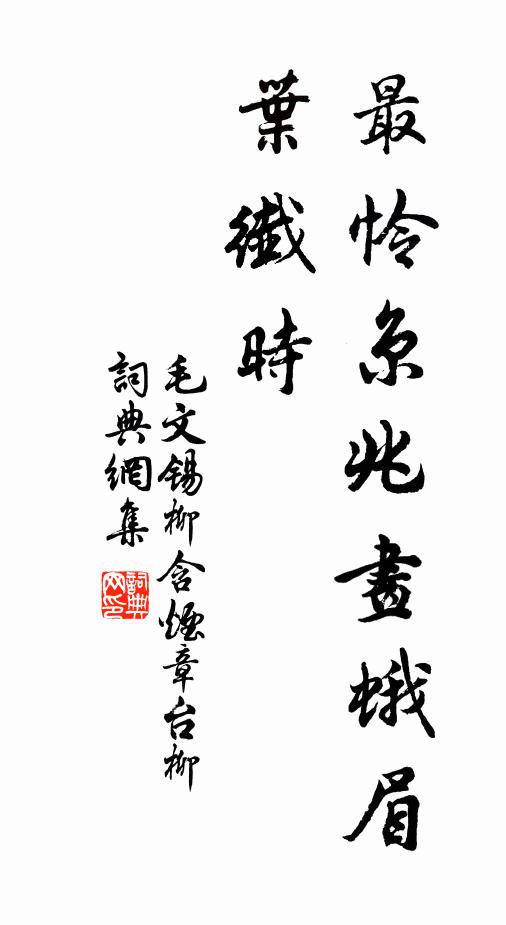 最怜京兆畫蛾眉
葉纖時
毛文锡柳含煙章台柳
詞典網集
詞典网印